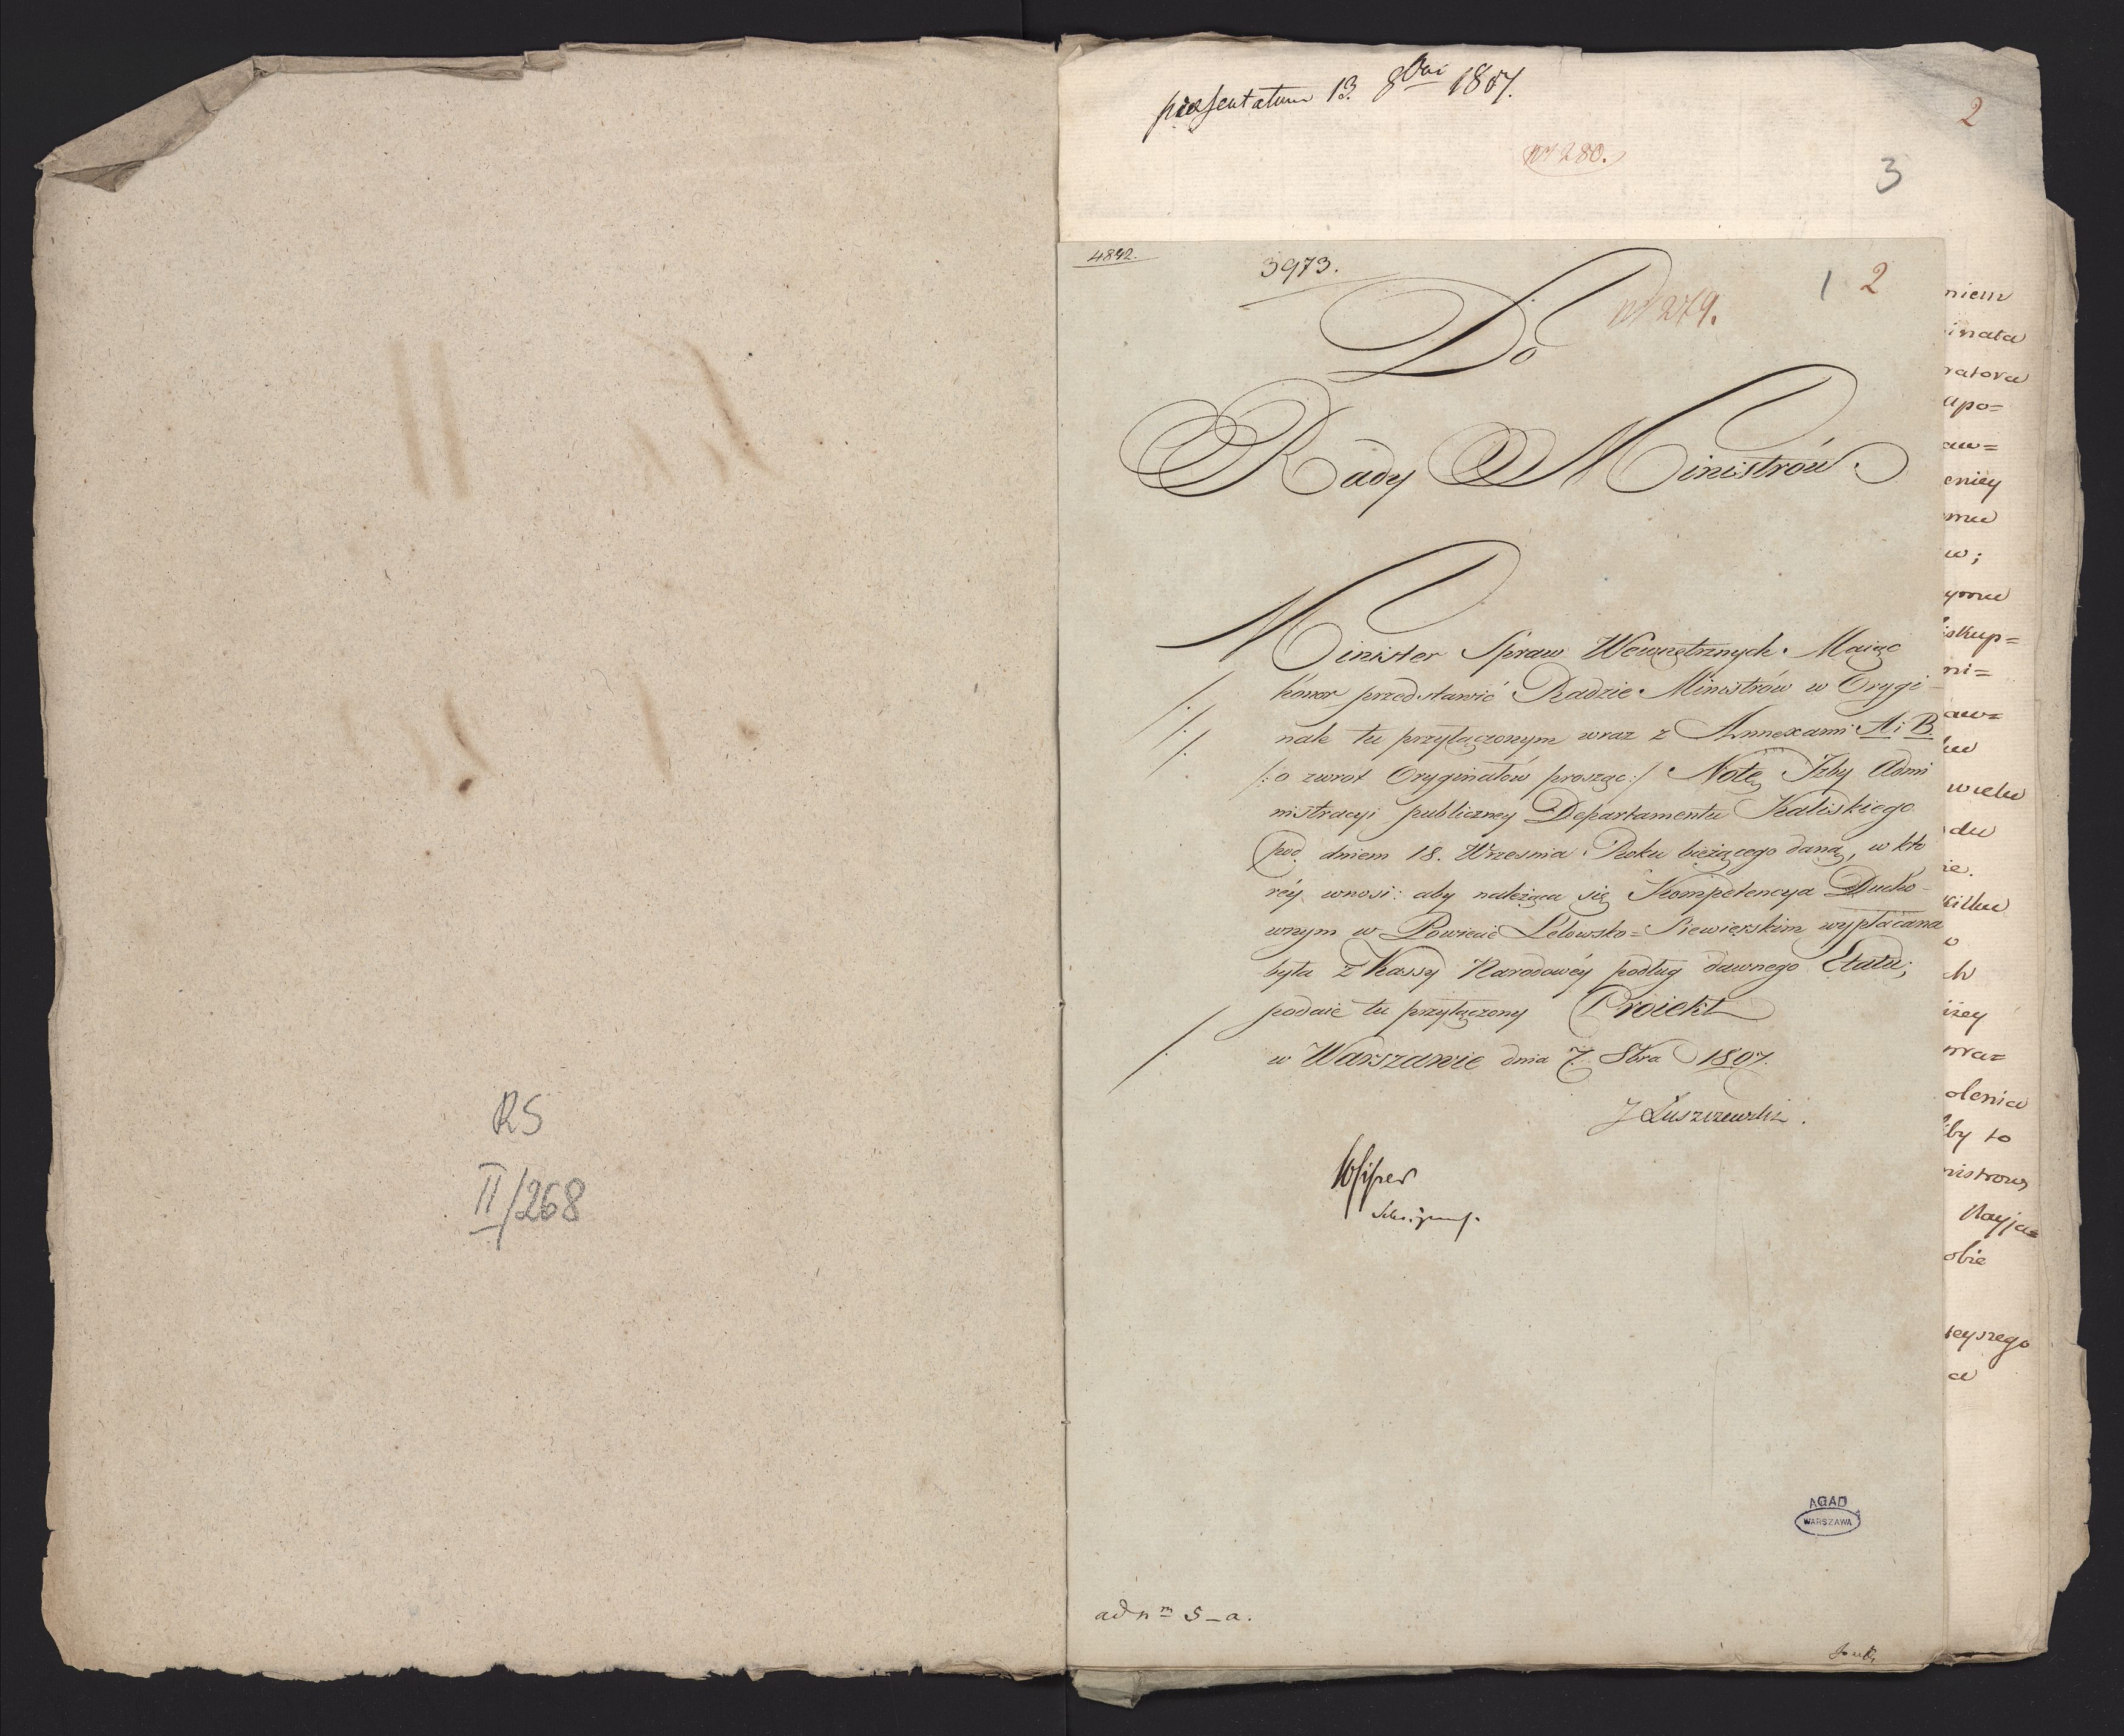 præsentatum 13. 8bri 1807.
2
N 280.
3
4892.
3973.
N 279.
1 2
Do
Rady Ministrów.
Minister Spraw Wewnętrznych. Maiąc
honor przedstawić Radzie Ministrów w Orygi-
nale tu przyłączonym wraz z Annexami A i B.
/:o zwrot Oryginałów prosząc:/ Notę Izby Admi
nistracyi publiczney Departamentu Kaliskiego
pod dniem 18. Wrzesnia Roku bieżącego daną, w któ
réy wnosi: aby należąca się Kompetencya Ducho-
wnym w Powiecie Lelowsko=Siewierskim wypłacana
była z Kassy Narodowéy podług dawnego Etatu;
podaie tu przyłączony Proiekt
w Warszawie dnia 7. 8bra 1807.
J Łuszczewski.
ad nm 5_a.
AGAD
WARSZAWA
RS
II/268
niem
inata
ratora
apo=
aw=
eniey
mu
w;
ymu
iskup=
ni=
aw=
wielu
du
ie.
kilku
ch
iżey
wra=
olenia
by to
nistrow
Nayja=
obie
eyszego